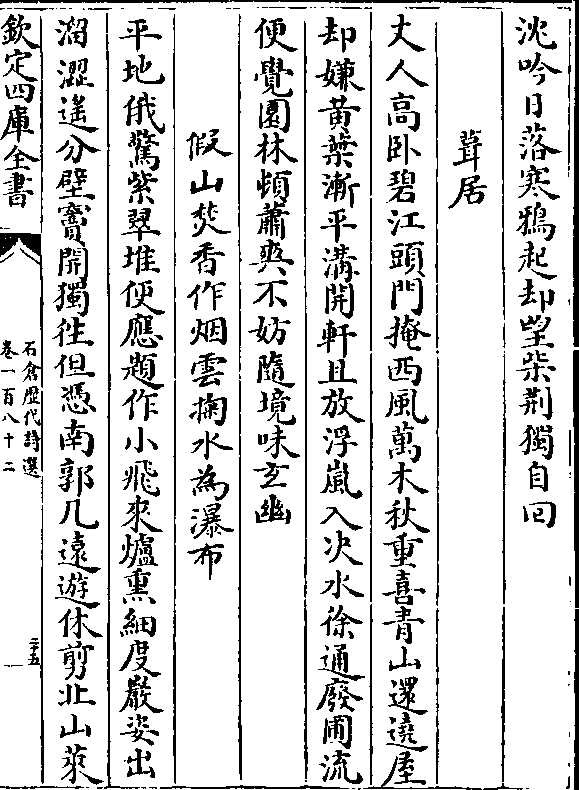 沈吟日落寒鴉起却望柴荆獨自回
葺居
丈人高卧碧江頭門掩西風萬木秋重喜青山還遶屋
却嫌黄葉漸平溝開軒且放浮嵐入決水徐通廢圃流
便覺園林頓蕭爽不妨隨境味玄幽
假山焚香作烟雲掬水為瀑布
平地俄驚紫翠堆便應題作小飛來爐熏細度巖姿出
溜澀遙分壁竇開獨徃但憑南郭几遠遊休剪北山萊
欽定四庫全書
石倉歴代詩選
卷一百八十二
二十五